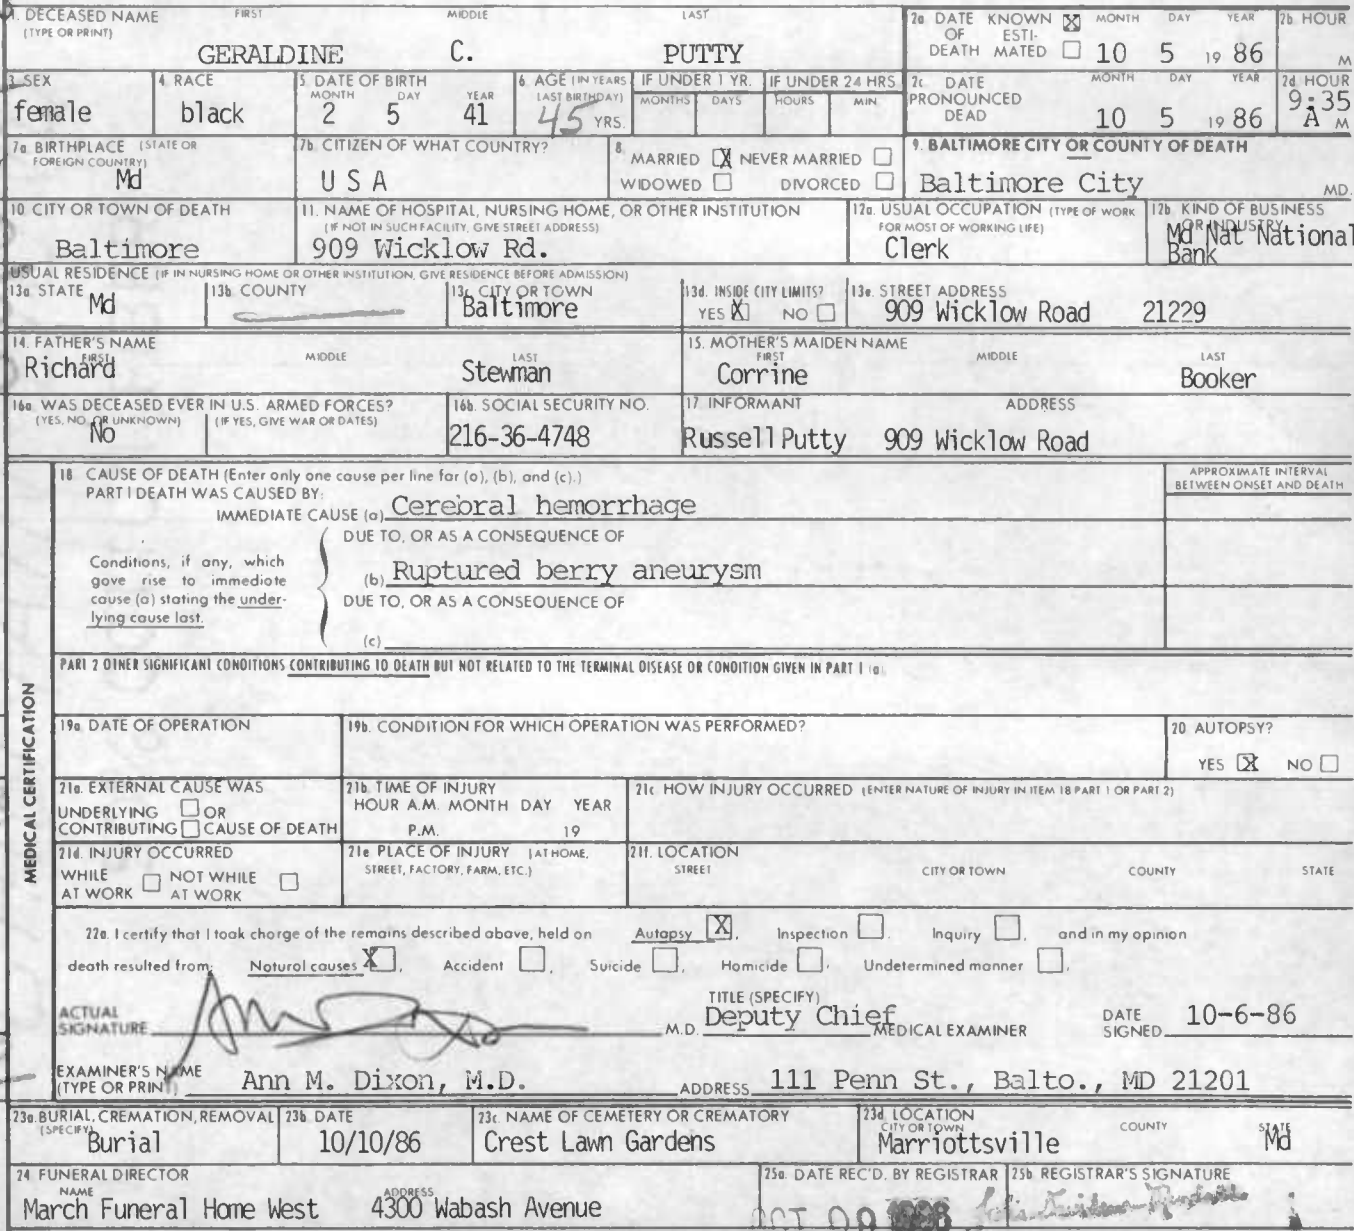 1. DECEASED NAME FIRST MIDDLE LAST
(TYPE OR PRINT)
GERALDINE C. PUTTY
2a DATE OF DEATH KNOWN X ESTIMATED MONTH DAY YEAR
10 5 19 86
2b. HOUR
M
3. SEX
female
4. RACE
black
5. DATE OF BIRTH
MONTH DAY YEAR
2 5 41
6. AGE (IN YEARS LAST BIRTHDAY)
45 YRS.
IF UNDER 1 YR. IF UNDER 24 HRS
MONTHS DAYS HOURS MIN.
2c. DATE PRONOUNCED DEAD MONTH DAY YEAR
10 5 19 86
2d. HOUR
9:35
A M
7a. BIRTHPLACE (STATE OR FOREIGN COUNTRY)
Md
7b. CITIZEN OF WHAT COUNTRY?
U S A
8. MARRIED X NEVER MARRIED
WIDOWED DIVORCED
9. BALTIMORE CITY OR COUNTY OF DEATH
Baltimore City MD.
10. CITY OR TOWN OF DEATH
Baltimore
11. NAME OF HOSPITAL, NURSING HOME, OR OTHER INSTITUTION
(IF NOT IN SUCH FACILITY, GIVE STREET ADDRESS)
909 Wicklow Rd.
12a. USUAL OCCUPATION (TYPE OF WORK FOR MOST OF WORKING LIFE)
Clerk
12b. KIND OF BUSINESS OR INDUSTRY
Md Nat National
Bank
USUAL RESIDENCE (IF IN NURSING HOME OR OTHER INSTITUTION, GIVE RESIDENCE BEFORE ADMISSION)
13a. STATE
Md
13b. COUNTY
13c. CITY OR TOWN
Baltimore
13d. INSIDE CITY LIMITS?
YES X NO
13e. STREET ADDRESS
909 Wicklow Road 21229
14. FATHER'S NAME
FIRST MIDDLE LAST
Richard Stewman
15. MOTHER'S MAIDEN NAME
FIRST MIDDLE LAST
Corrine Booker
16a. WAS DECEASED EVER IN U.S. ARMED FORCES?
(YES, NO, OR UNKNOWN) (IF YES, GIVE WAR OR DATES)
No
16b. SOCIAL SECURITY NO.
216-36-4748
17. INFORMANT ADDRESS
Russell Putty 909 Wicklow Road
MEDICAL CERTIFICATION
18 CAUSE OF DEATH (Enter only one cause per line for (a), (b), and (c).)
PART I DEATH WAS CAUSED BY:
IMMEDIATE CAUSE (a) Cerebral hemorrhage
APPROXIMATE INTERVAL
BETWEEN ONSET AND DEATH
DUE TO, OR AS A CONSEQUENCE OF
Conditions, if any, which
gave rise to immediate
cause (a) stating the under-
lying cause last.
(b) Ruptured berry aneurysm
DUE TO, OR AS A CONSEQUENCE OF
(c)
PART 2 OTHER SIGNIFICANT CONDITIONS CONTRIBUTING TO DEATH BUT NOT RELATED TO THE TERMINAL DISEASE OR CONDITION GIVEN IN PART 1 (a).
19a. DATE OF OPERATION
19b. CONDITION FOR WHICH OPERATION WAS PERFORMED?
20 AUTOPSY?
YES X NO
21a. EXTERNAL CAUSE WAS
UNDERLYING OR
CONTRIBUTING CAUSE OF DEATH
21b. TIME OF INJURY
HOUR A.M. MONTH DAY YEAR
P.M. 19
21c. HOW INJURY OCCURRED (ENTER NATURE OF INJURY IN ITEM 18 PART 1 OR PART 2)
21d. INJURY OCCURRED
WHILE AT WORK NOT WHILE AT WORK
21e. PLACE OF INJURY (AT HOME, STREET, FACTORY, FARM, ETC.)
21f. LOCATION
STREET CITY OR TOWN COUNTY STATE
22a. I certify that I took charge of the remains described above, held on Autopsy X, Inspection, Inquiry, and in my opinion
death resulted from: Natural causes X, Accident, Suicide, Homicide, Undetermined manner.
ACTUAL
SIGNATURE M.D.
TITLE (SPECIFY)
Deputy Chief MEDICAL EXAMINER
DATE SIGNED 10-6-86
EXAMINER'S NAME
(TYPE OR PRINT) Ann M. Dixon, M.D.
ADDRESS 111 Penn St., Balto., MD 21201
23a. BURIAL, CREMATION, REMOVAL
(SPECIFY)
Burial
23b. DATE
10/10/86
23c. NAME OF CEMETERY OR CREMATORY
Crest Lawn Gardens
23d. LOCATION
CITY OR TOWN COUNTY STATE
Marriottsville Md
24 FUNERAL DIRECTOR
NAME ADDRESS
March Funeral Home West 4300 Wabash Avenue
25a. DATE REC'D. BY REGISTRAR
OCT 09
25b. REGISTRAR'S SIGNATURE